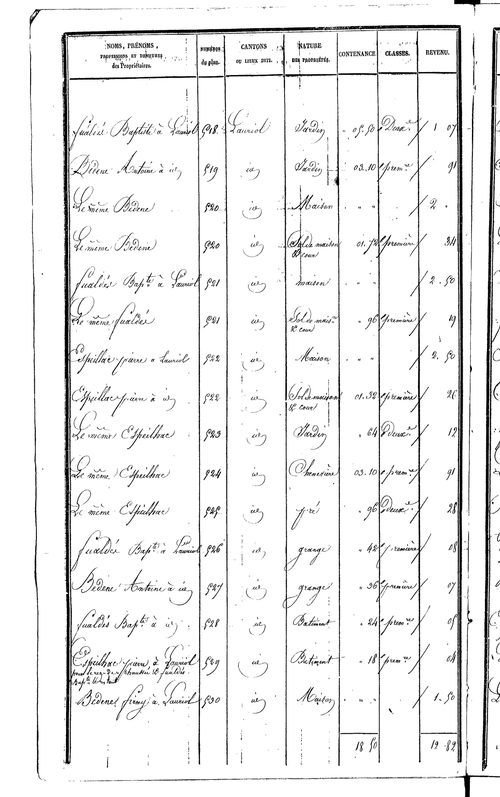 NOMS, PRÉNOMS, PROFESSIONS ET DEMEURES des Propriétaires. NUMÉROS du plan. CANTONS OU LIEUX DITS. NATURE DES PROPRIÉTÉS. CONTENANCE. CLASSES. REVENU.
fualdés Baptiste à Lauriol 518 Lauriol Jardin " 05.50 Deux.e 1 07
Bedene Antoine à id 519 id Jardin 03.10 prem.e 91
Le même Bedene 520 id Maison " " " 2 "
Le même Bedene 520 id Sol de maison & cour 01.72 première 34
fualdés Bap.te à Lauriol 521 id maison " " 2.50
Le même fualdés 521 id Sol de mais.n & cour " 96 première 19
Espeilhac pierre à Lauriol 522 id Maison " " " 2.50
Espeilhac pierre à id 522 id Sol de maison & cour 01.32 première 26
Le même Espeilhac 523 id Jardin " 64 Deux.e 12
Le même Espeilhac 524 id Chenevière 03.10 prem.e 91
Le même Espeilhac 525 id pré " 96 Deux.e 28
fualdés Bap.te à Lauriol 526 id grange " 42 première 08
Bedene Antoine à id 527 id grange " 36 première 07
fualdés Bap.te à id 528 id Batiment " 24 prem.e 05
Espeilhac pierre à Lauriol 529 id Batiment " 18 prem.e 04
Bedene firmy à Lauriol 530 id Maison " " 1.50
18 50 19 82